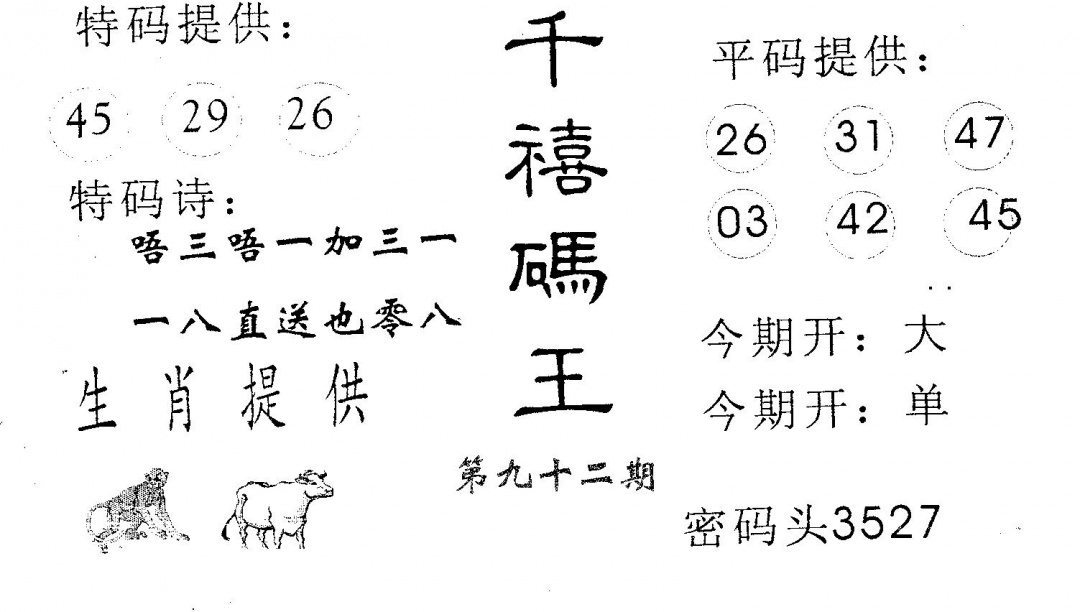 特码提供：
45 29 26
特码诗：
唔三唔一加三一
一八直送也零八
生肖提供
千禧碼王
第九十二期
平码提供：
26 31 47
03 42 45
今期开：大
今期开：单
密码头3527